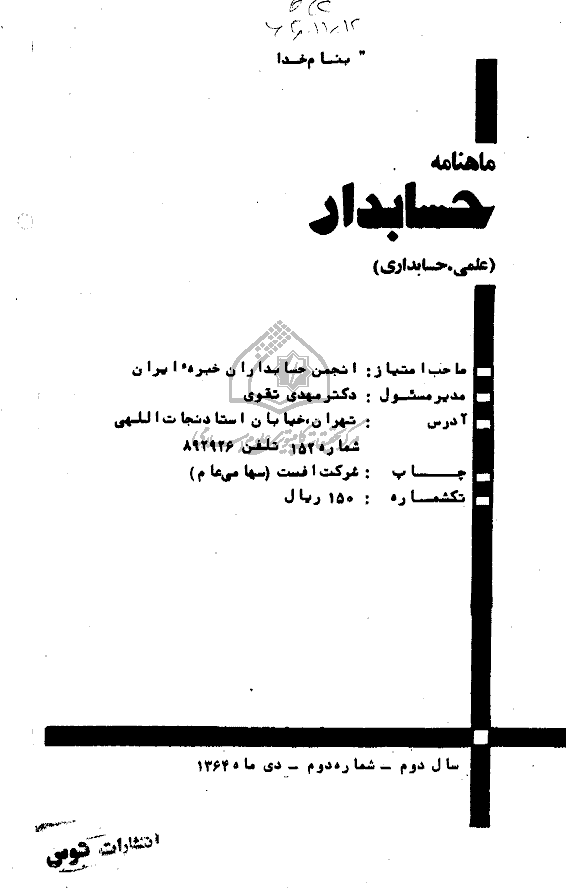 " بنام خدا
ماهنامه
حسابدار
(علمی، حسابداری)
صاحب امتیاز : انجمن حسابداران خبرهٔ ایران
مدیر مسئول : دکتر مهدی تقوی
آدرس : تهران، خیابان استاد نجات اللهی
شماره ۱۵۲ تلفن ۸۹۲۹۲۶
چاپ : شرکت افست (سهامی عام)
تکشماره : ۱۵۰ ریال
سال دوم - شماره دوم - دی ماه ۱۳۶۴
انتشارات توس